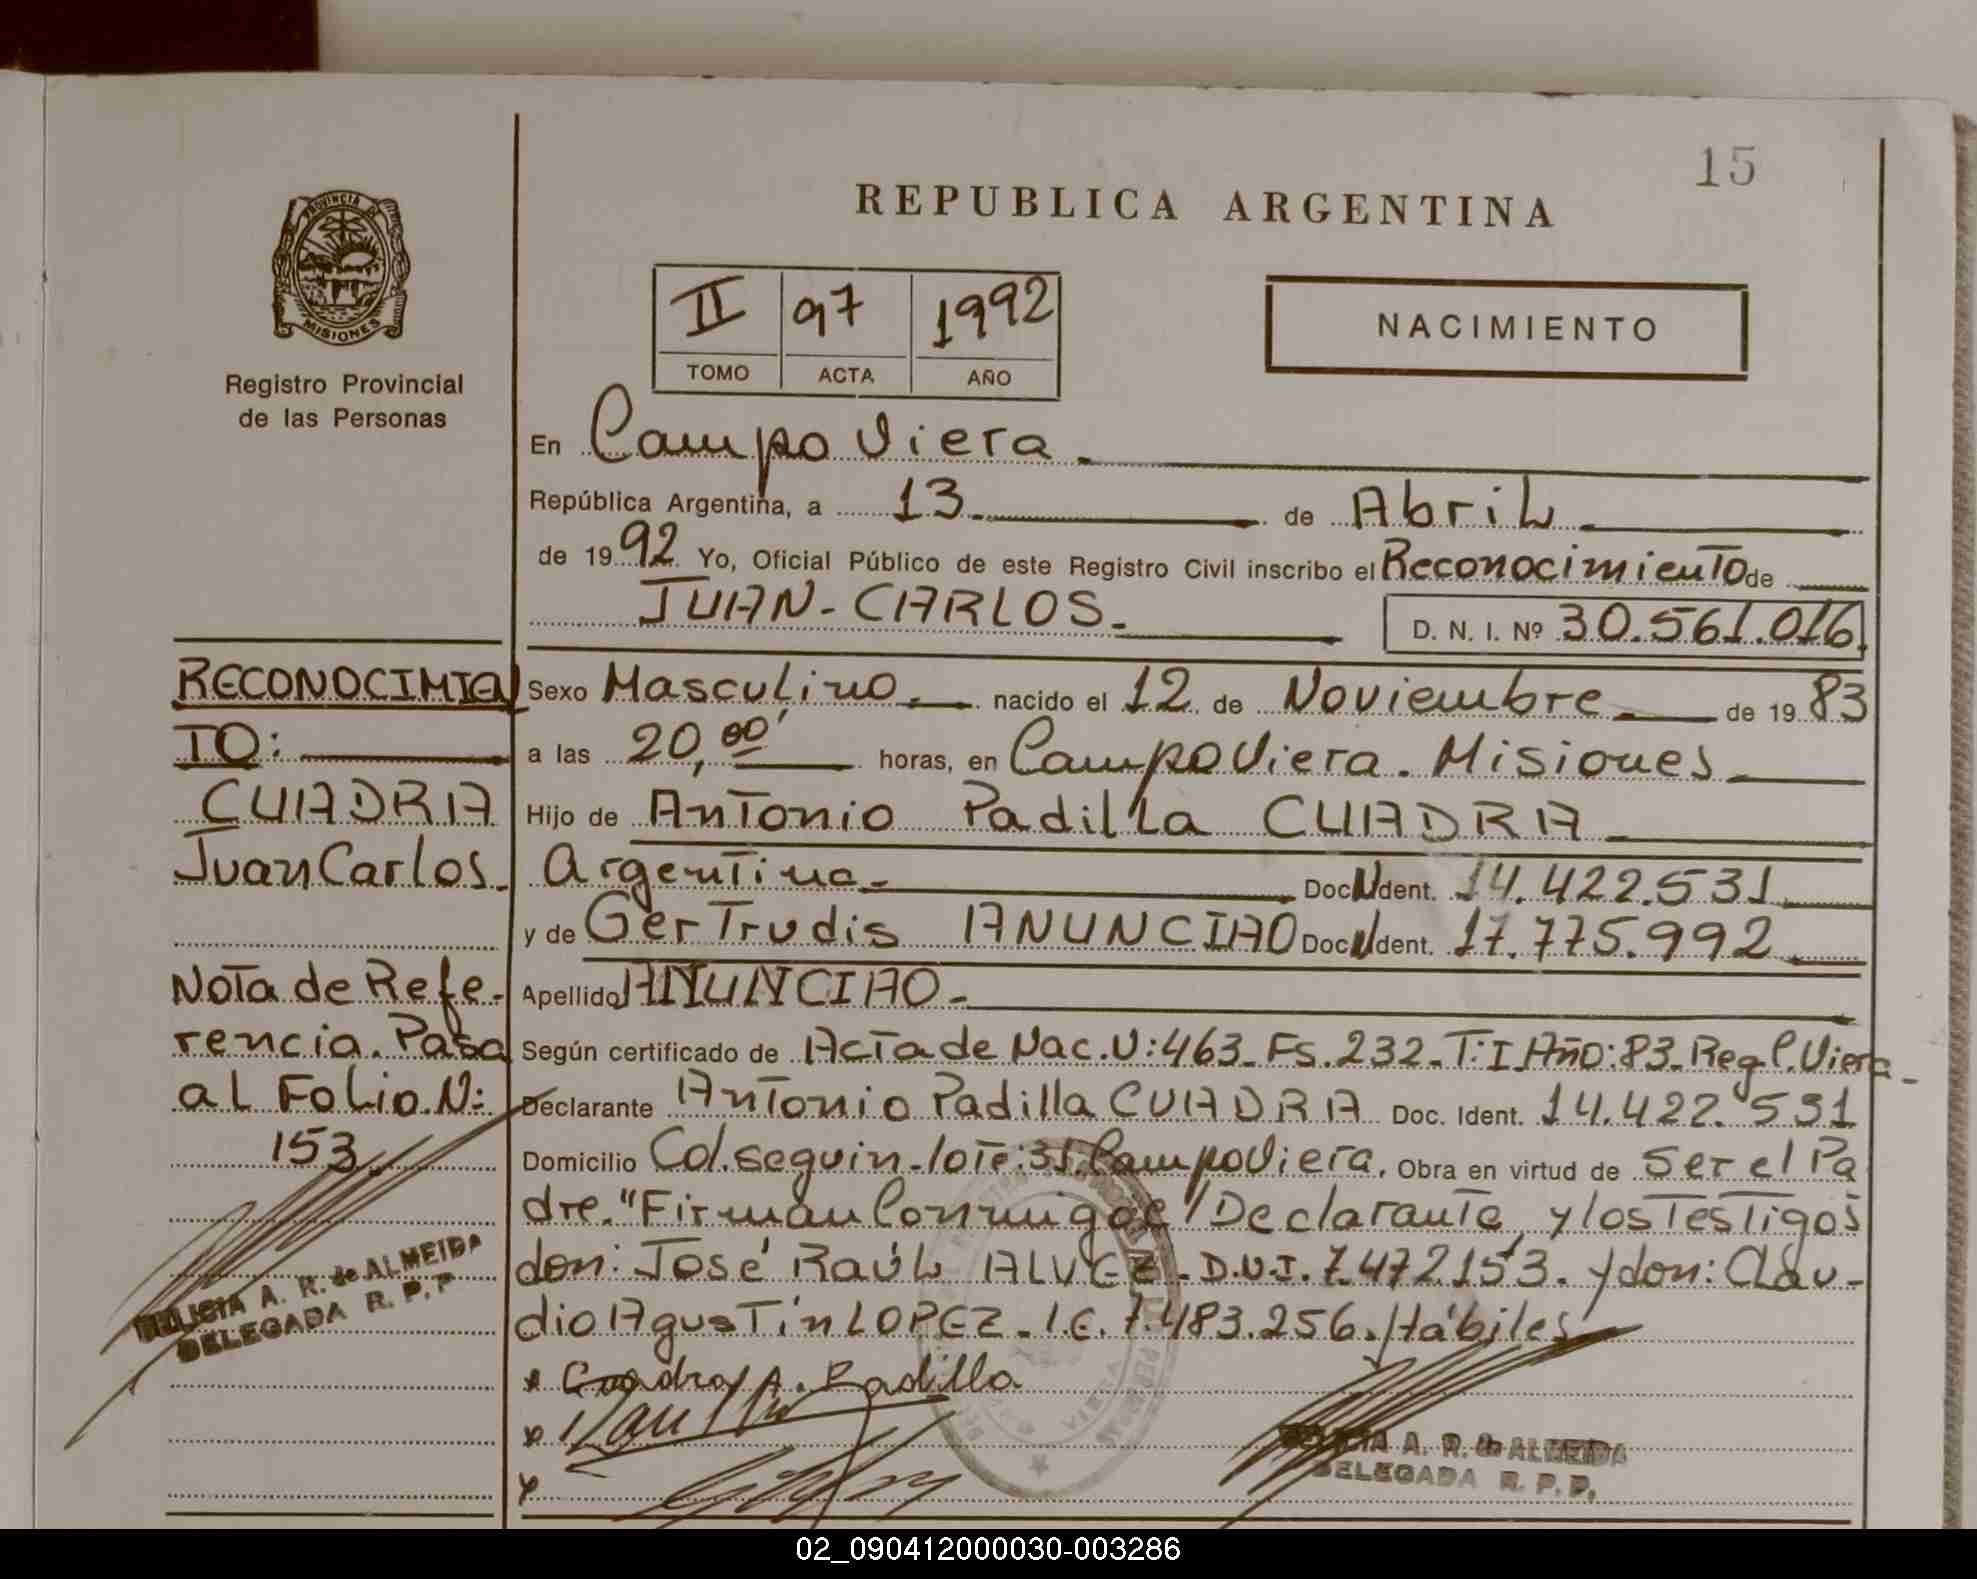 15
REPUBLICA ARGENTINA
PROVINCIA DE
MISIONES
Registro Provincial
de las Personas
II 97 1992
TOMO ACTA AÑO
NACIMIENTO
En Campo Viera
República Argentina, a 13 de Abril
de 1992 Yo, Oficial Público de este Registro Civil inscribo el Reconocimiento de
JUAN-CARLOS. D. N. I. Nº 30.561.016.
RECONOCIMIEN
TO:
CUADRA
Juan Carlos.
Nota de Refe-
rencia. Pasa
al Folio. N:
153
FELICIA A. R. de ALMEIDA
DELEGADA R. P. P.
Sexo Masculino. nacido el 12 de Noviembre de 1983
a las 20,00' horas, en Campo Viera. Misiones
Hijo de Antonio Padilla CUADRA
Argentina. Doc. N Ident. 14.422.531
y de Gertrudis ANUNCIAO Doc. N Ident. 17.775.992
Apellido ANUNCIAO.
Según certificado de Acta de Nac. N:463. Fs. 232. T: I. Año: 83. Reg C. Viera.
Declarante Antonio Padilla CUADRA Doc. Ident. 14.422.531
Domicilio Col. seguin-lote:31. Campo Viera. Obra en virtud de Ser el Pa
dre. "Firman Conmigo el Declarante, y los Testigos
don: José Raúl ALVEZ. D.N.I. 7.472.153. y don: Clau-
dio Agustín LOPEZ. I.E. 7.483.256. Hábiles
x Cuadra A. Padilla
FELICIA A. R. de ALMEIDA
DELEGADA R. P. P.
02_090412000030-003286